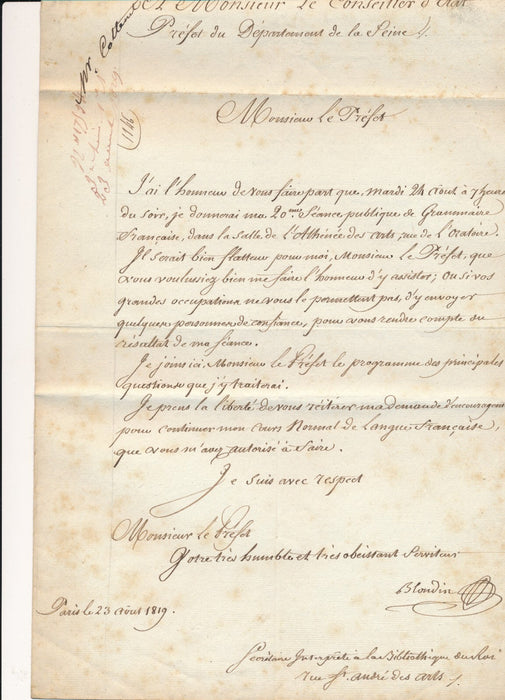 Monsieur le Conseiller d'Etat
Préfet du Département de la Seine
1146
Monsieur le Préfet
J'ai l'honneur de vous faire part que, mardi 24 aout à 7 heures
du soir, je donnerai ma 20eme Séance publique de Grammaire
Française, dans la Salle de l'Athénée des arts, rue de l'oratoire.
Il serait bien flatteur pour moi, Monsieur le Préfet, que
vous voulussiez bien me faire l'honneur d'y assister; ou si vos
grandes occupations ne vous le permettent pas, d'y envoyer
quelques personnes de confiance, pour vous rendre compte du
résultat de ma séance.
Je joins ici, Monsieur le Préfet le programme des principales
questions que j'y traiterai.
Je prens la liberté de vous réitérer ma demande d'encouragement
pour continuer mon cours Normal de Langue Française,
que vous m'avez autorisé à faire.
Je suis avec respect
Monsieur le Préfet
Votre très humble et très obeissant Serviteur
Blondin
Paris le 23 août 1819.
Secrétaire Interprète à la Bibliothèque du Roi
rue St. andré des arts